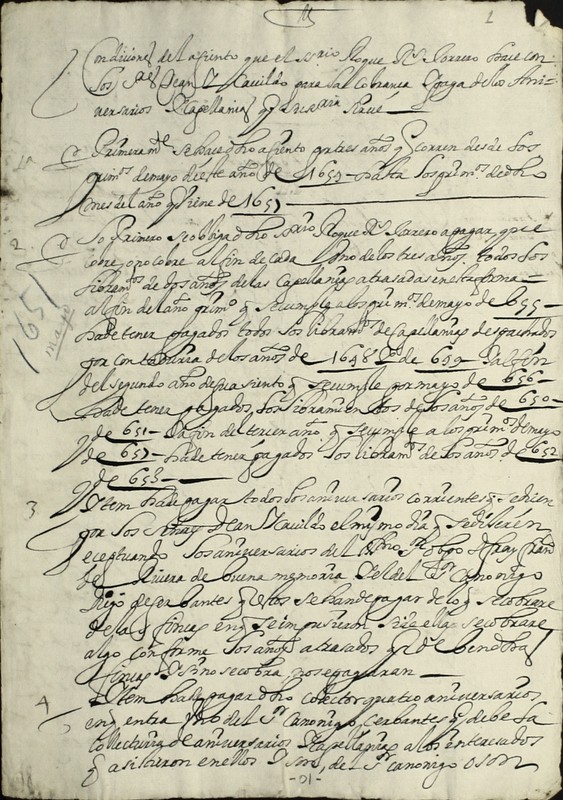 1
Condiciones del asiento que el Roque Rs. Forrero hace con
los Dean y Cavildo para la cobranza y paga de los Anni-
versarios y Capellanias
1a Primeramte. se hace dho asiento por tres años q corren desde los
de mayo de este año de 1654 hasta de dho
mes del año q viene de 1657
2 Lo Primero se obliga dho Roque Rs. Forrero a pagar, que
cobre, o no cobre al fin de cada Uno de los tres años, todos los
libramtos. de dos años de las Capellanias atrasadas en esta forma =
al fin del año q se cumple de mayo de 655 —
ha de tener pagados todos los libramtos. de Capellanias despachados
por contaduria de los años de 1648 y de 649 y al fin
del segundo año deste asiento q se cumple por mayo de 656 —
ha de tener pagados, los libramientos de los años de 650 —
y de 651 — y al fin de tercer año q se cumple a los de mayo
de 657 — ha de tener pagados los libramtos. de los años de 652
y de 653 —
1651
mayo
3 Ytem ha de pagar todos los aniversarios corrientes q se
por los Dean y Cavildo el mismo dia q se dixeren
eceptuando los aniversarios del fray
de Rivera de buena memoria y el del Sr. Canonigo
Yñigo de Serbantes q estos se han de pagar de lo q se cobrare
de las fincas en q se impusieron si de ellas se cobrare
algo conforme los años atrasados
fincas y si no se cobra, no se pagaran —
4 Ytem ha de pagar dho colector quatro aniversarios
en q entra Uno del Sr. Canonigo, Cerbantes q debe la
collecturia de aniversarios y Capellanias a los interesados
q asistieron en ellos y Uno, del Sr. canonigo